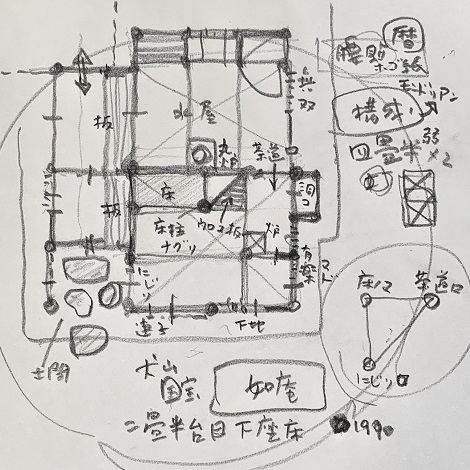 暦
腰貼
ホゴ紙
モンドリアン
構成
四畳半弱
×2
板
水屋
丸炉
茶道口
床
板
床柱
ナグリ
ウロコ板
炉
有楽マド
にじり
連子
下地
土間
床ノマ
茶道口
にじり口
犬山
国宝
如庵
二畳半台目下座床